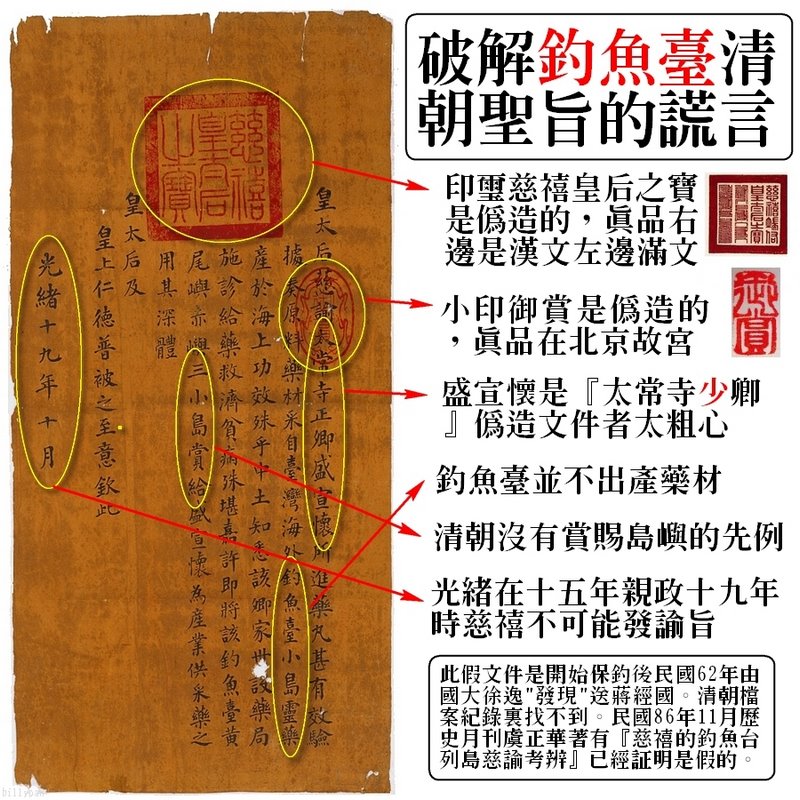 破解釣魚臺清
朝聖旨的謊言
慈禧
皇后
之寶
皇太后慈諭太常寺正卿盛宣懷所進藥丸甚有效驗
據奏原料藥材采自臺灣海外釣魚臺小島靈藥
產於海上功效殊乎中土知悉該卿家世設藥局
施診給藥救濟貧病殊堪嘉許即將該釣魚臺黃
尾嶼赤嶼三小島賞給盛宣懷為產業供采藥之
用其深體
皇太后及
皇上仁德普被之至意欽此
光緒十九年十月
印璽慈禧皇后之寶
是僞造的，眞品右
邊是漢文左邊滿文
小印御賞是僞造的
，眞品在北京故宮
盛宣懷是『太常寺少卿
』僞造文件者太粗心
釣魚臺並不出產藥材
清朝沒有賞賜島嶼的先例
光緒在十五年親政十九年
時慈禧不可能發諭旨
此假文件是開始保釣後民國62年由
國大徐逸"發現"送蔣經國。清朝檔
案紀錄裏找不到。民國86年11月歷
史月刊虞正華著有『慈禧的釣魚台
列島慈諭考辨』已經証明是假的。